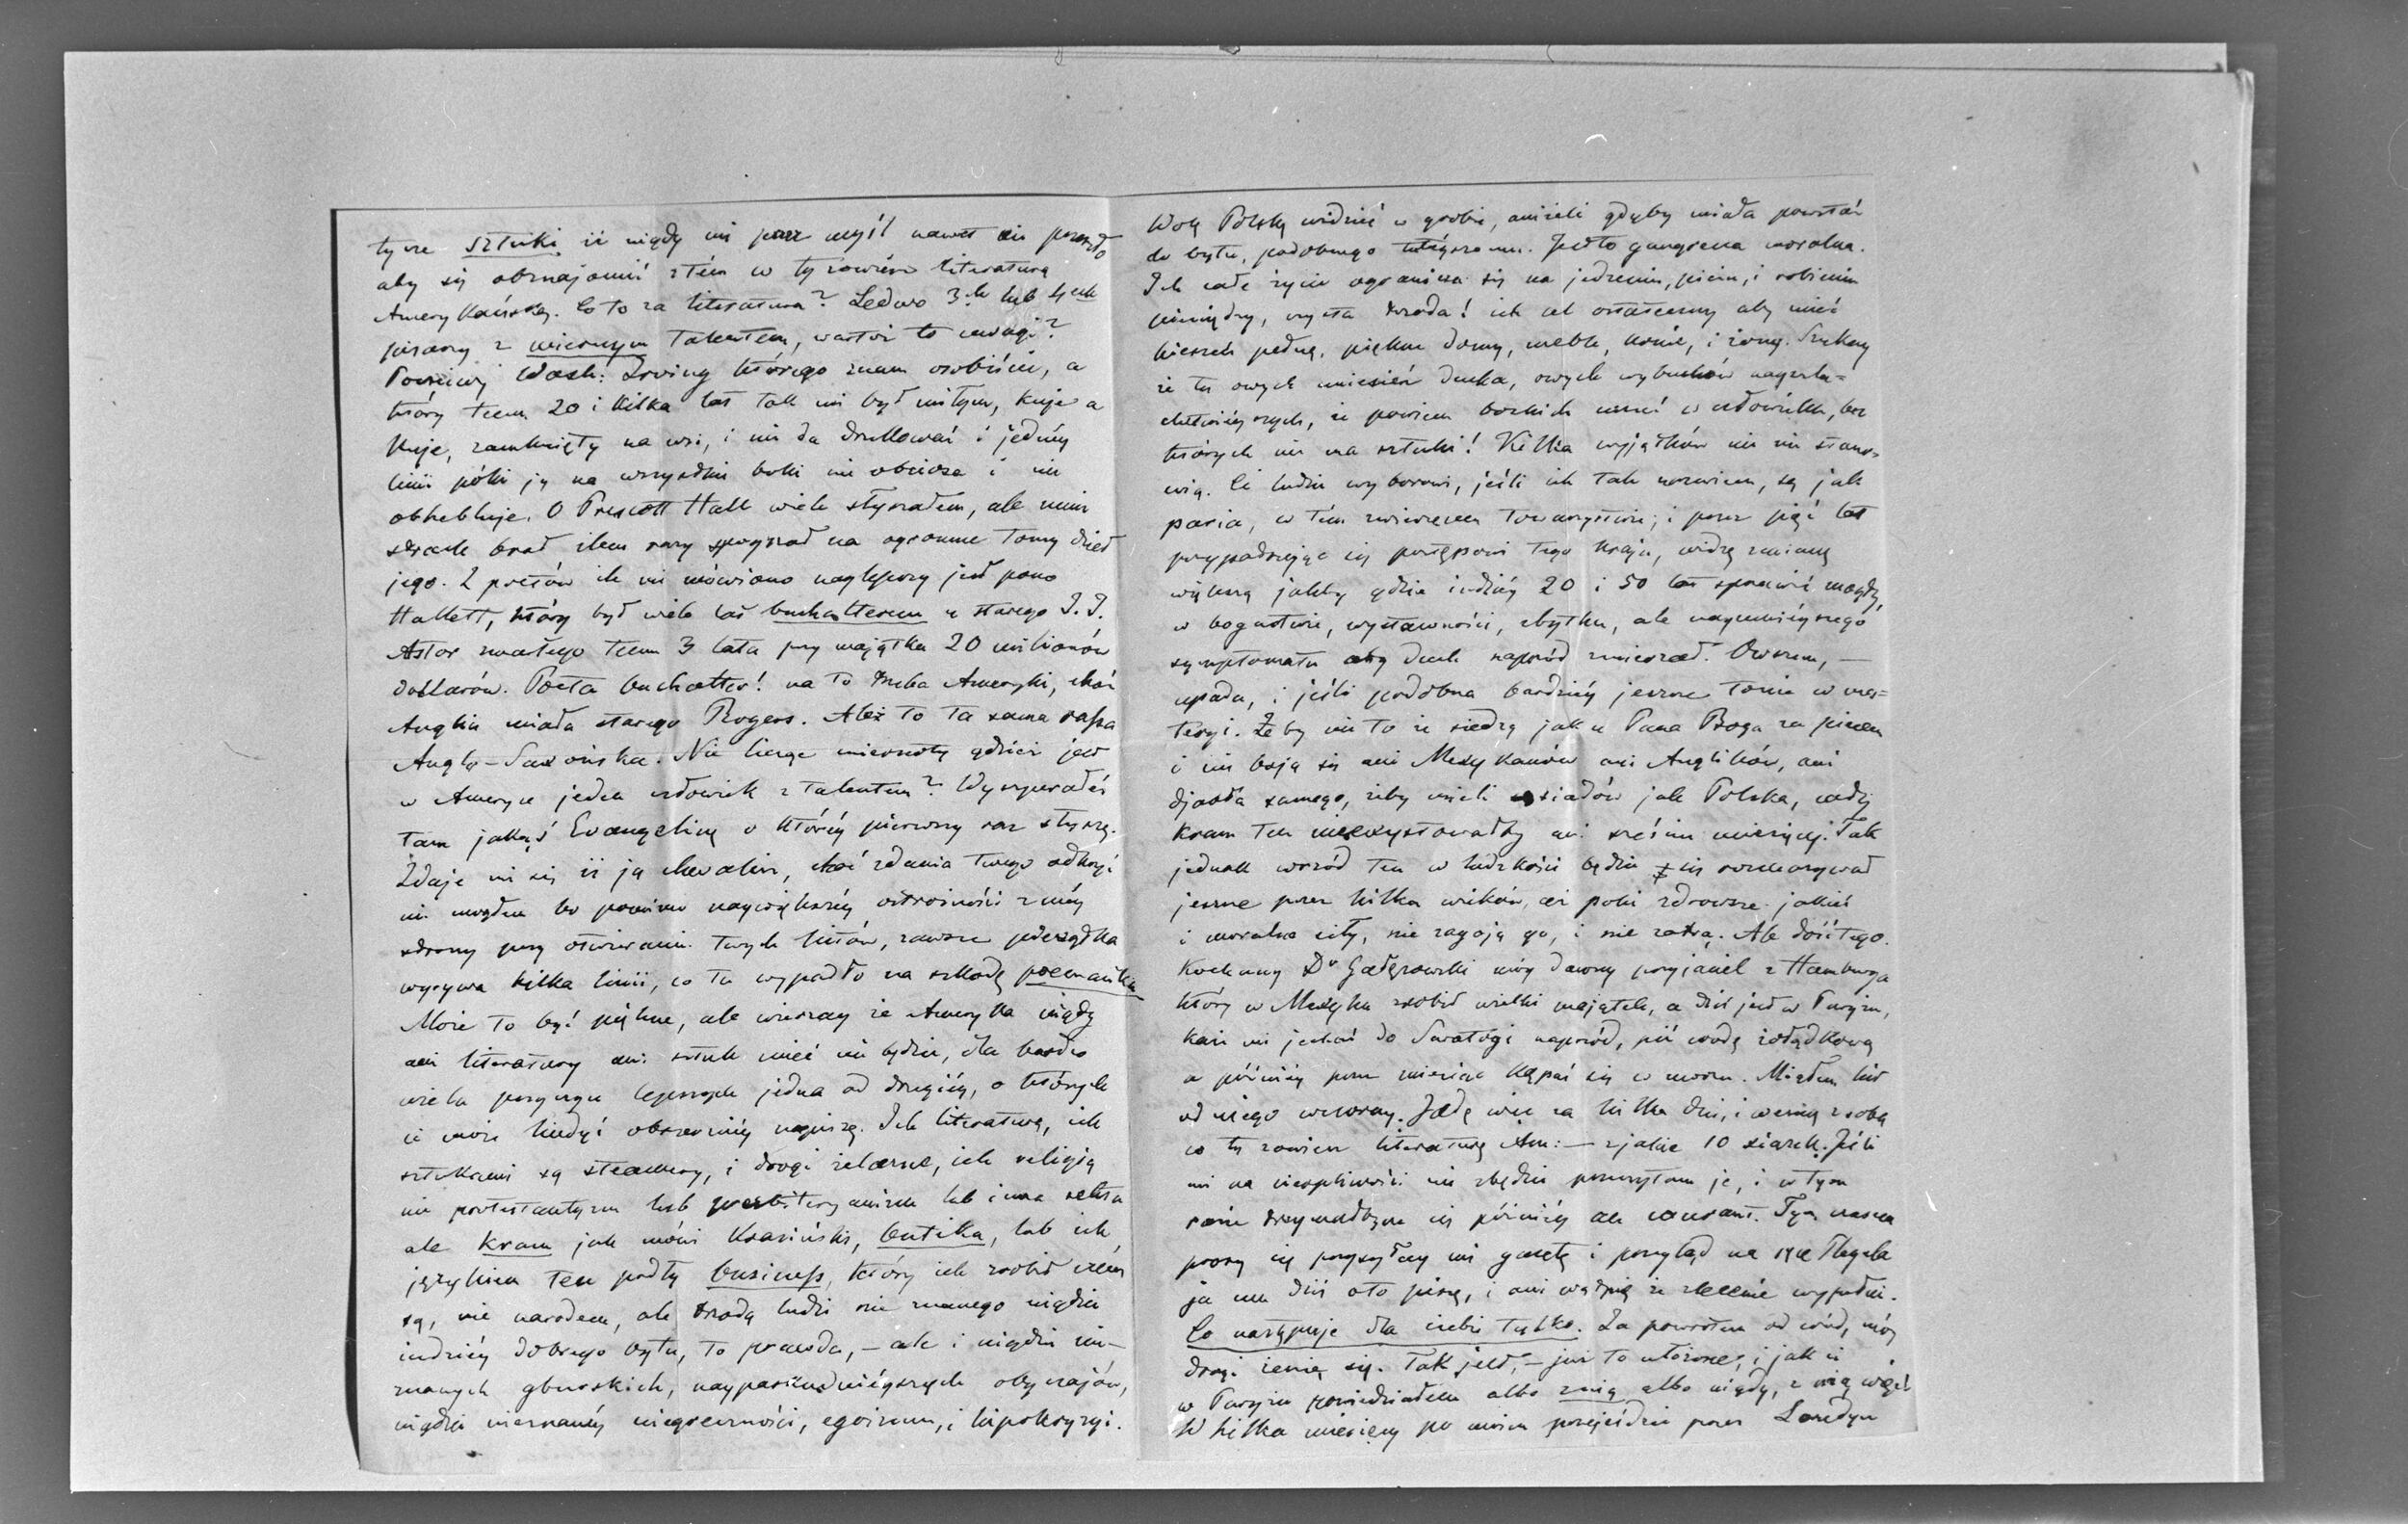 tyże sztuki iż nigdy mi przez myśl nawet nie przeszło
aby się obznajomić z tém co ty zowiesz literaturą
Amerykańską. Co to za literatura? Ledwo 3ch lub 4ech
pisarzy z miernym talentem, wartoż to uwagi?
Poczciwy Wash: Irving którego znam osobiście, a
który temu 20 i kilka lat tak mi był miłym, kuje a
kuje, zamknięty na wsi, i nie da drukować i jednéj
linii póki ją na wszystkie boki nie obciosa i nie
obhebluje. O Prescott Hall wiele słyszałem, ale mnie
strach brał ilem razy spoyrzał na ogromne tomy dzieł
jego. Z poetów ile mi mówiono najlepszy jest pono
Hallett, który był wiele lat buchalterem u starego J. J.
Astor zmarłego temu 3 lata przy majątku 20 milionów
dollarów. Poeta buchalter! na to trzeba Ameryki, choć
Anglia miała starego Rogers. Ależ to ta sama rassa
Anglo-Saxońska. Nie licząc mierności gdzież jest
w Ameryce jeden człowiek z talentem? Wyszperałeś
tam jakąś Evangelinę o któréj pierwszy raz słyszę.
Zdaje mi się iż ją chwalisz, choć zdania twego odkryć
nie mogłem bo pomimo naywiększéj ostrożności z méj
strony przy otwieraniu twych listów, zawsze pieczątka
wyrywa kilka linii, co tu wypadło na szkodę poemaciku
Może to być piękne, ale wierzaj że Ameryka nigdy
ani literatury ani sztuk mieć nie będzie, dla bardzo
wielu przyczyn lepszych jedna od drugiéj, o których
ci może kiedyś obszerniéj napiszę. Ich literaturą, ich
sztukami są steamery, i drogi żelazne, ich religią
nie protestantyzm lub presbiteryanizm lub inna sekta
ale kram jak mówi Krasiński, butika, lub ich
językiem ten podły business, który ich zrobił czem
są, nie narodem, ale trzodą ludzi nie znanego nigdzie
indziéj dobrego bytu, to prawda, – ale i nigdzie nie-
znanych gburskich, naypaskudniéyszych obyczajów,
nigdzie nieznanéj niegrzeczności, egoizmu, i hipokryzyi.
Wolę Polskę widzieć w grobie, aniżeli gdyby miała powstać
do bytu, podobnego tutéyszemu. Jest to gangrena moralna.
Ich całe życie ogranicza się na jedzeniu, piciu, i robieniu
pieniędzy, czysta trzoda! ich cel ostateczny aby mieć
kieszeń pełną, piękne domy, meble, konie, i żonę. Szukaj
że tu owych uniesień ducha, owych wybuchów nayszla-
chetniéyszych, że powiem boskich uczuć w człowieku, bez
których nie ma sztuki! Kilka wyjątków nic nie stano-
wią. Ci ludzie wyborowi, jeśli ich tak nazwiem, są jak
paria, w tém towarzystwie; i przez pięć lat
przypatrując się postępowi tego kraju, widzę zmianę
większą jakby gdzie indziéj 20 i 50 lat sprawić mogły,
w bogactwie, wystawności, zbytku, ale naymniéyszego
symptomatu aby duch naprzód zmierzał. Owszem, —
upada, i jeśli podobna bardziéj jeszcze tonie w ma-
teryi. Żeby nie to że siedzą jak u Pana Boga za piecem
i nie boją się ani Mexykanów ani Anglików, ani
djabła samego, żeby mieli sąsiadów jak Polska, cały
kram ten nieexystowałby ani sześciu miesięcy. Tak
jednak wrzód ten w ludzkości będzie się rozmarzywał
jeszcze przez kilka wieków, aż poki zdrowsze jakieś
i moralne siły, nie zagoją go, i nie zatrą. Ale dość tego.
Kochany Dr Gałęzowski mój dawny przyjaciel z Hamburga
który w Mexyku zrobił wielki majątek, a dziś jest w Paryżu,
każe mi jechać do Saratogi naprzód, pić wodę żołądkową
a późniéj przez miesiąc kąpać się w morzu. Miałem list
od niego wczoraj. Jadę więc za kilka dni, i wezmę z sobą
co ty zowiesz literaturą Am: — z jakie 10 xiążek. Jeśli
mi na cierpliwości nie zbędzie przeczytam je, i w tym
razie trzymałbym się późniéj au courant. Tym czasem
proszę cię przysyłay mi gazetę i przegląd na ręce Flegela
ja mu dziś oto piszę, i ani wątpię że zlecenie wypełni.
Co następuje dla ciebie tylko. Za powrotem od wód, mój
drogi żenię się. Tak jest, – już to ułożone, i jak ci
w Paryżu powiedziałem albo z nią albo nigdy, z nią więc!
W kilka miesięcy po moim przejeździe przez Londyn